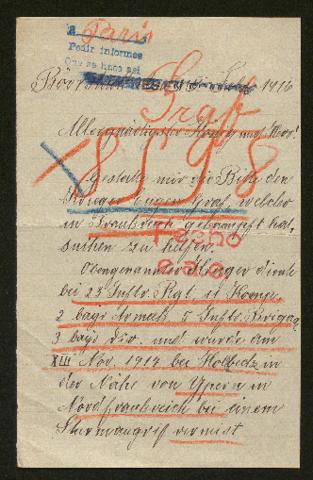 a Paris
Pedir informes
Que se hace así
1916
Graf
Allergnädigster König und Herr!
8598
Gestatte mir die Bitte den
Krieger Eugen Graf, welcher
in Frankreich gekämpft hat,
suchen zu helfen.
Obengenannter Krieger diente
bei 23 Inftr. Rgt. 11 Komp.
2 bayr Armeek 5 Inftr. Brigad
3 bayr Div. und wurde am
XIII Nov. 1914 bei in
der Nähe von Ypern in
Nordfrankreich bei einem
Sturmangriff vermist